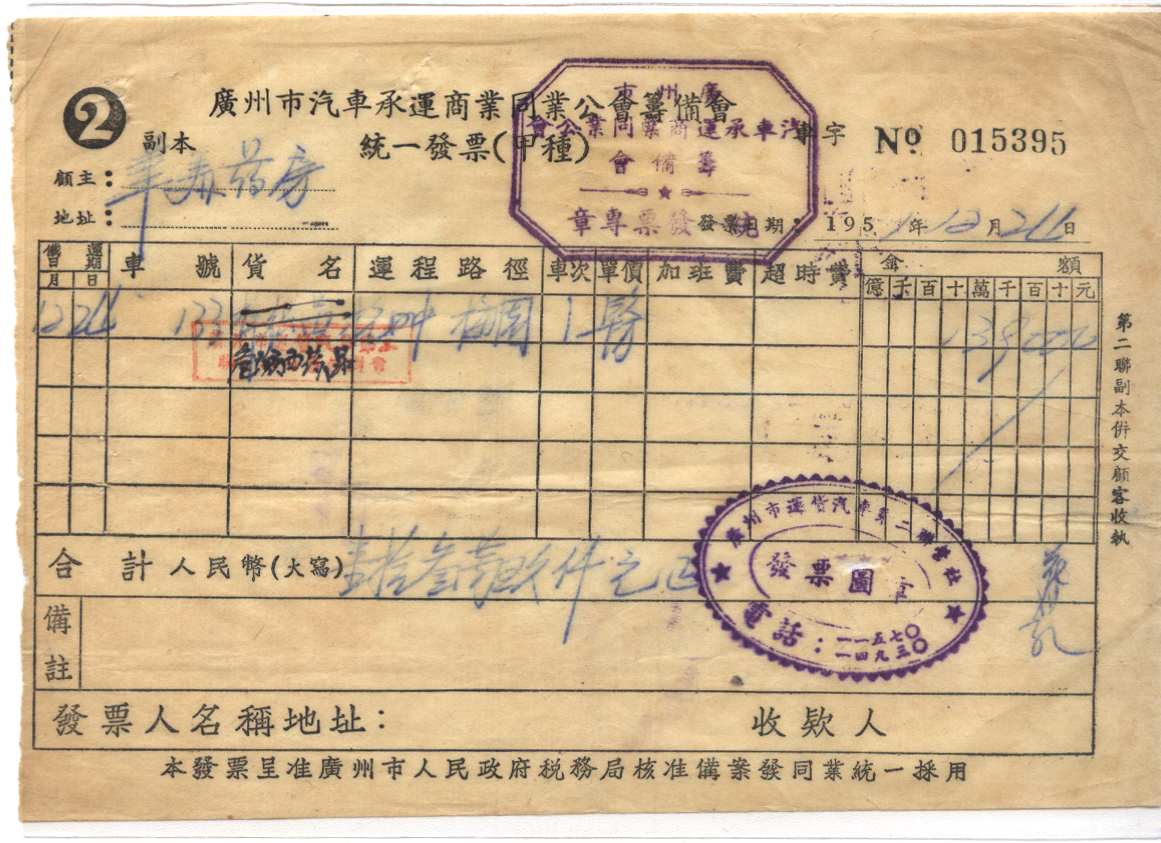 2
廣州市汽車承運商業同業公會籌備會
副本
統一發票(甲種)
車字 № 015395
廣州市
汽車承運商業同業公會
籌備會
統一發票專章
顧主： 药房
地址：
發票日期： 1951年12月26日
備運日期 車號 貨名 運程路徑 車次 單價 加班費 超時費 金額
月 日 億 千 百 十 萬 千 百 十 元
12 26 133 1
合計人民幣(大寫) 壹拾叁萬玖仟元正
廣州市運货汽車第二聯營社
發票圖章
電話：一一五七〇
一四九三〇
備註
發票人名稱地址： 收欵人
本發票呈准廣州市人民政府税務局核准備案發同業統一採用
第二聯副本併交顧客收執